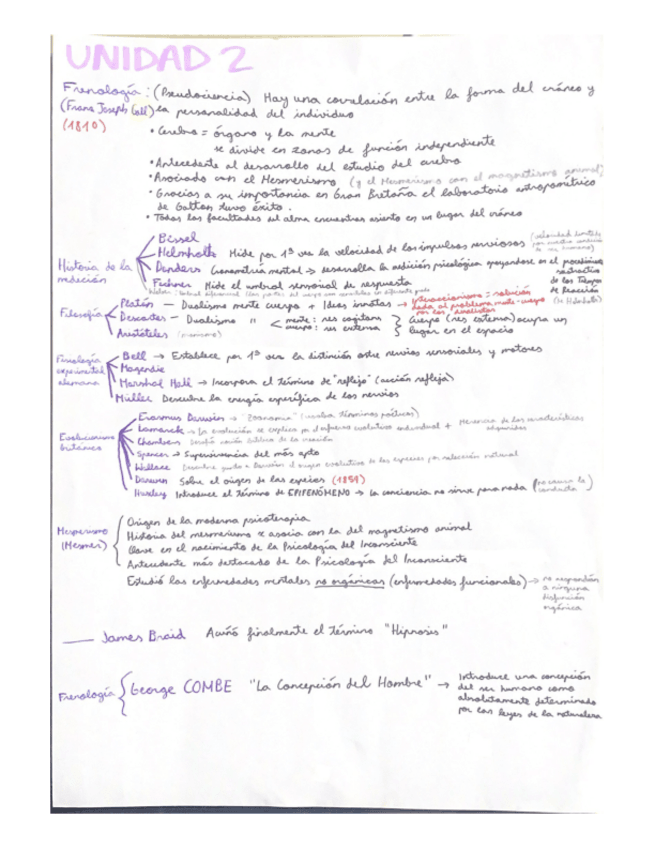 UNIDAD 2
Frenología: (Pseudociencia) Hay una correlación entre la forma del cráneo y
(Franz Joseph Gall) la personalidad del individuo
(1810)
• Cerebro = órgano y la mente
se divide en zonas de función independiente
• Antecedente al desarrollo del estudio del cerebro
• Asociado con el Mesmerismo (y el Mesmerismo con el magnetismo animal)
• Gracias a su importancia en Gran Bretaña el laboratorio antropométrico
de Galton tuvo éxito.
• Todas las facultades del alma encuentran asiento en un lugar del cráneo
Historia de la medición
Bessel
Helmholtz Mide por 1ª vez la velocidad de los impulsos nerviosos (velocidad limitada
Donders Cronometría mental → desarrolla la medición psicológica apoyándose en el procedimiento
sustractivo de los Tiempos de Reacción
(de Helmholtz)
Fechner Mide el umbral sensorial de respuesta
Filosofía
Platón — Dualismo mente cuerpo + Ideas innatas → Interaccionismo = solución
dada al problema mente-cuerpo
por los dualistas
Descartes — Dualismo " < mente: res cogitans
cuerpo: res extensa } Cuerpo (res extensa) ocupa un
lugar en el espacio
Aristóteles
Fisiología experimental alemana
Bell → Establece por 1ª vez la distinción entre nervios sensoriales y motores
Magendie
Marshal Hall → Incorpora el término de "reflejo" (acción refleja)
Müller Descubre la energía específica de los nervios
Evolucionismo británico
Erasmus Darwin → "Zoonomia" (usaba términos poéticos)
Lamarck → La evolución se explica por el esfuerzo evolutivo individual + Herencia de las características
adquiridas
Chambers Desafió noción bíblica de la creación
Spencer → Supervivencia del más apto
Wallace Descubre junto a Darwin el origen evolutivo de las especies por selección natural
Darwin Sobre el origen de las especies (1859)
Huxley Introduce el término de EPIFENÓMENO → La conciencia no sirve para nada (no causa la
conducta)
Mesmerismo
(Mesmer)
Origen de la moderna psicoterapia
Historia del mesmerismo se asocia con la del magnetismo animal
Clave en el nacimiento de la Psicología del Inconsciente
Antecedente más destacado de la Psicología del Inconsciente
Estudió las enfermedades mentales no orgánicas (enfermedades funcionales) → no respondían
a ninguna
disfunción
orgánica
James Braid Acuñó finalmente el término "Hipnosis"
Frenología { George COMBE "La Concepción del Hombre" → Introduce una concepción
del ser humano como
absolutamente determinado
por las leyes de la naturaleza